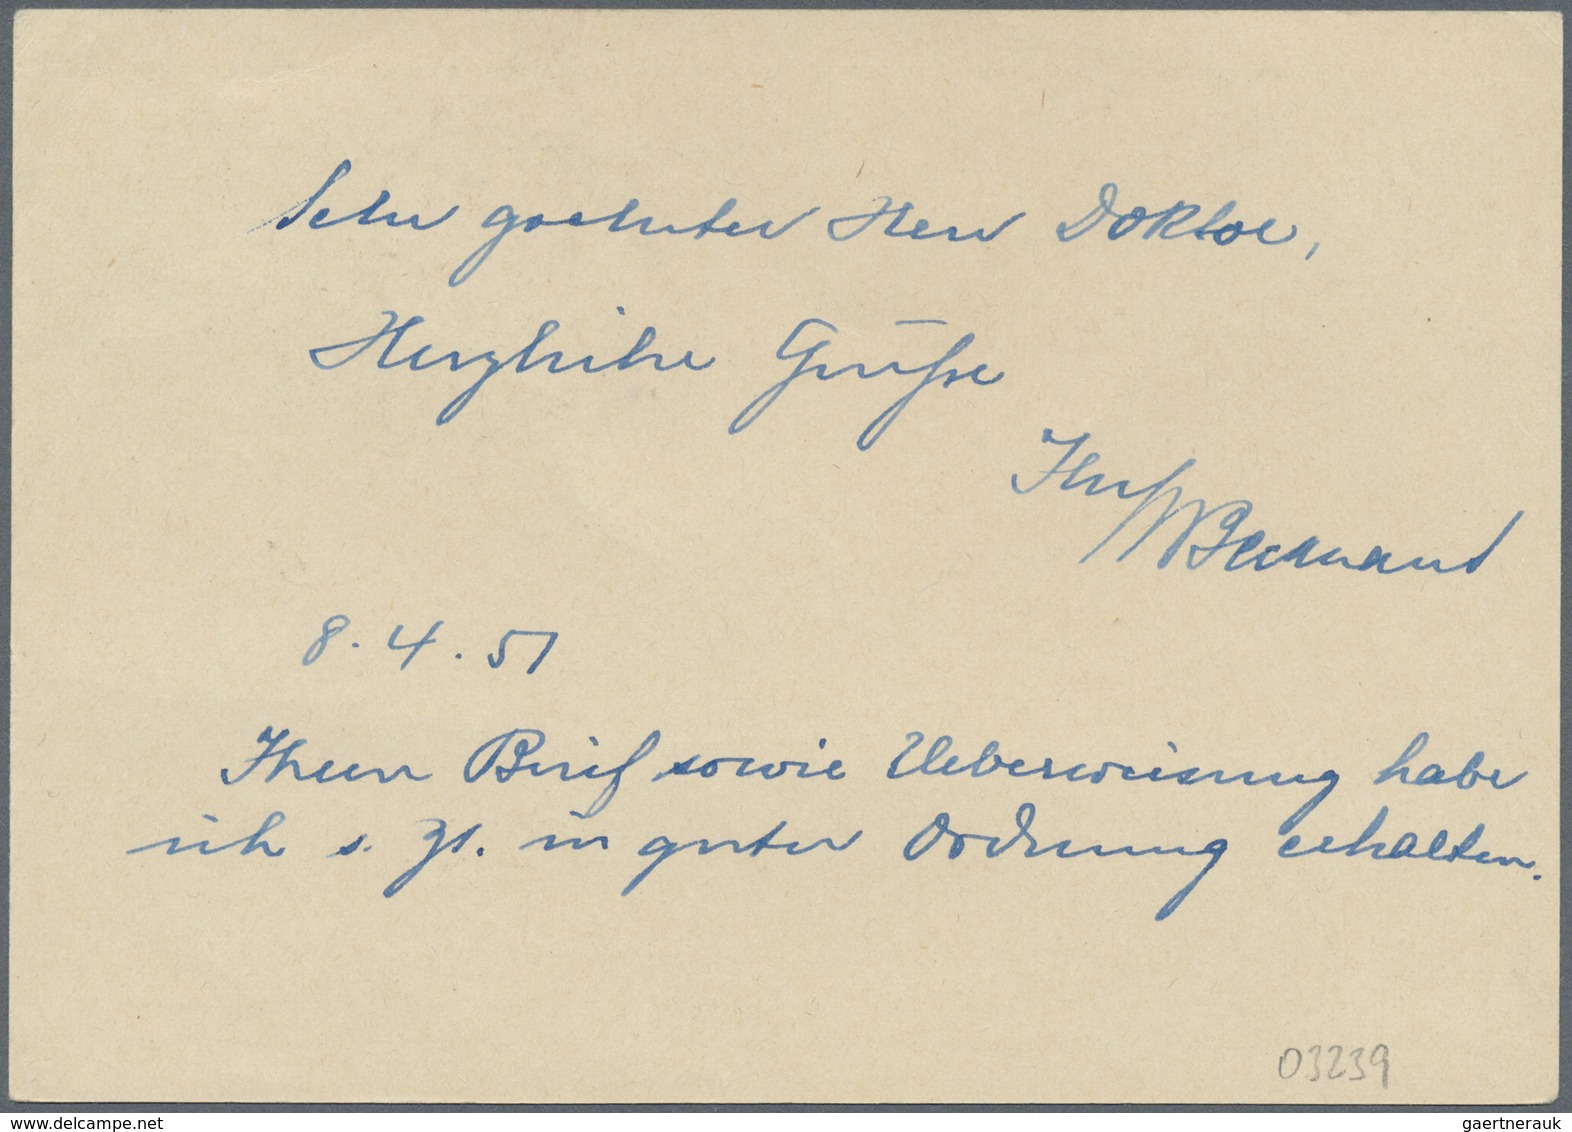 Sehr geehrter Herr Doktor,
Herzliche Grüße
Ihr
8. 4. 51
Ihren Brief sowie Ueberweisung habe
ich s. Zt. in guter Ordnung erhalten.
03239
www.delcampe.net
gaertnerauk